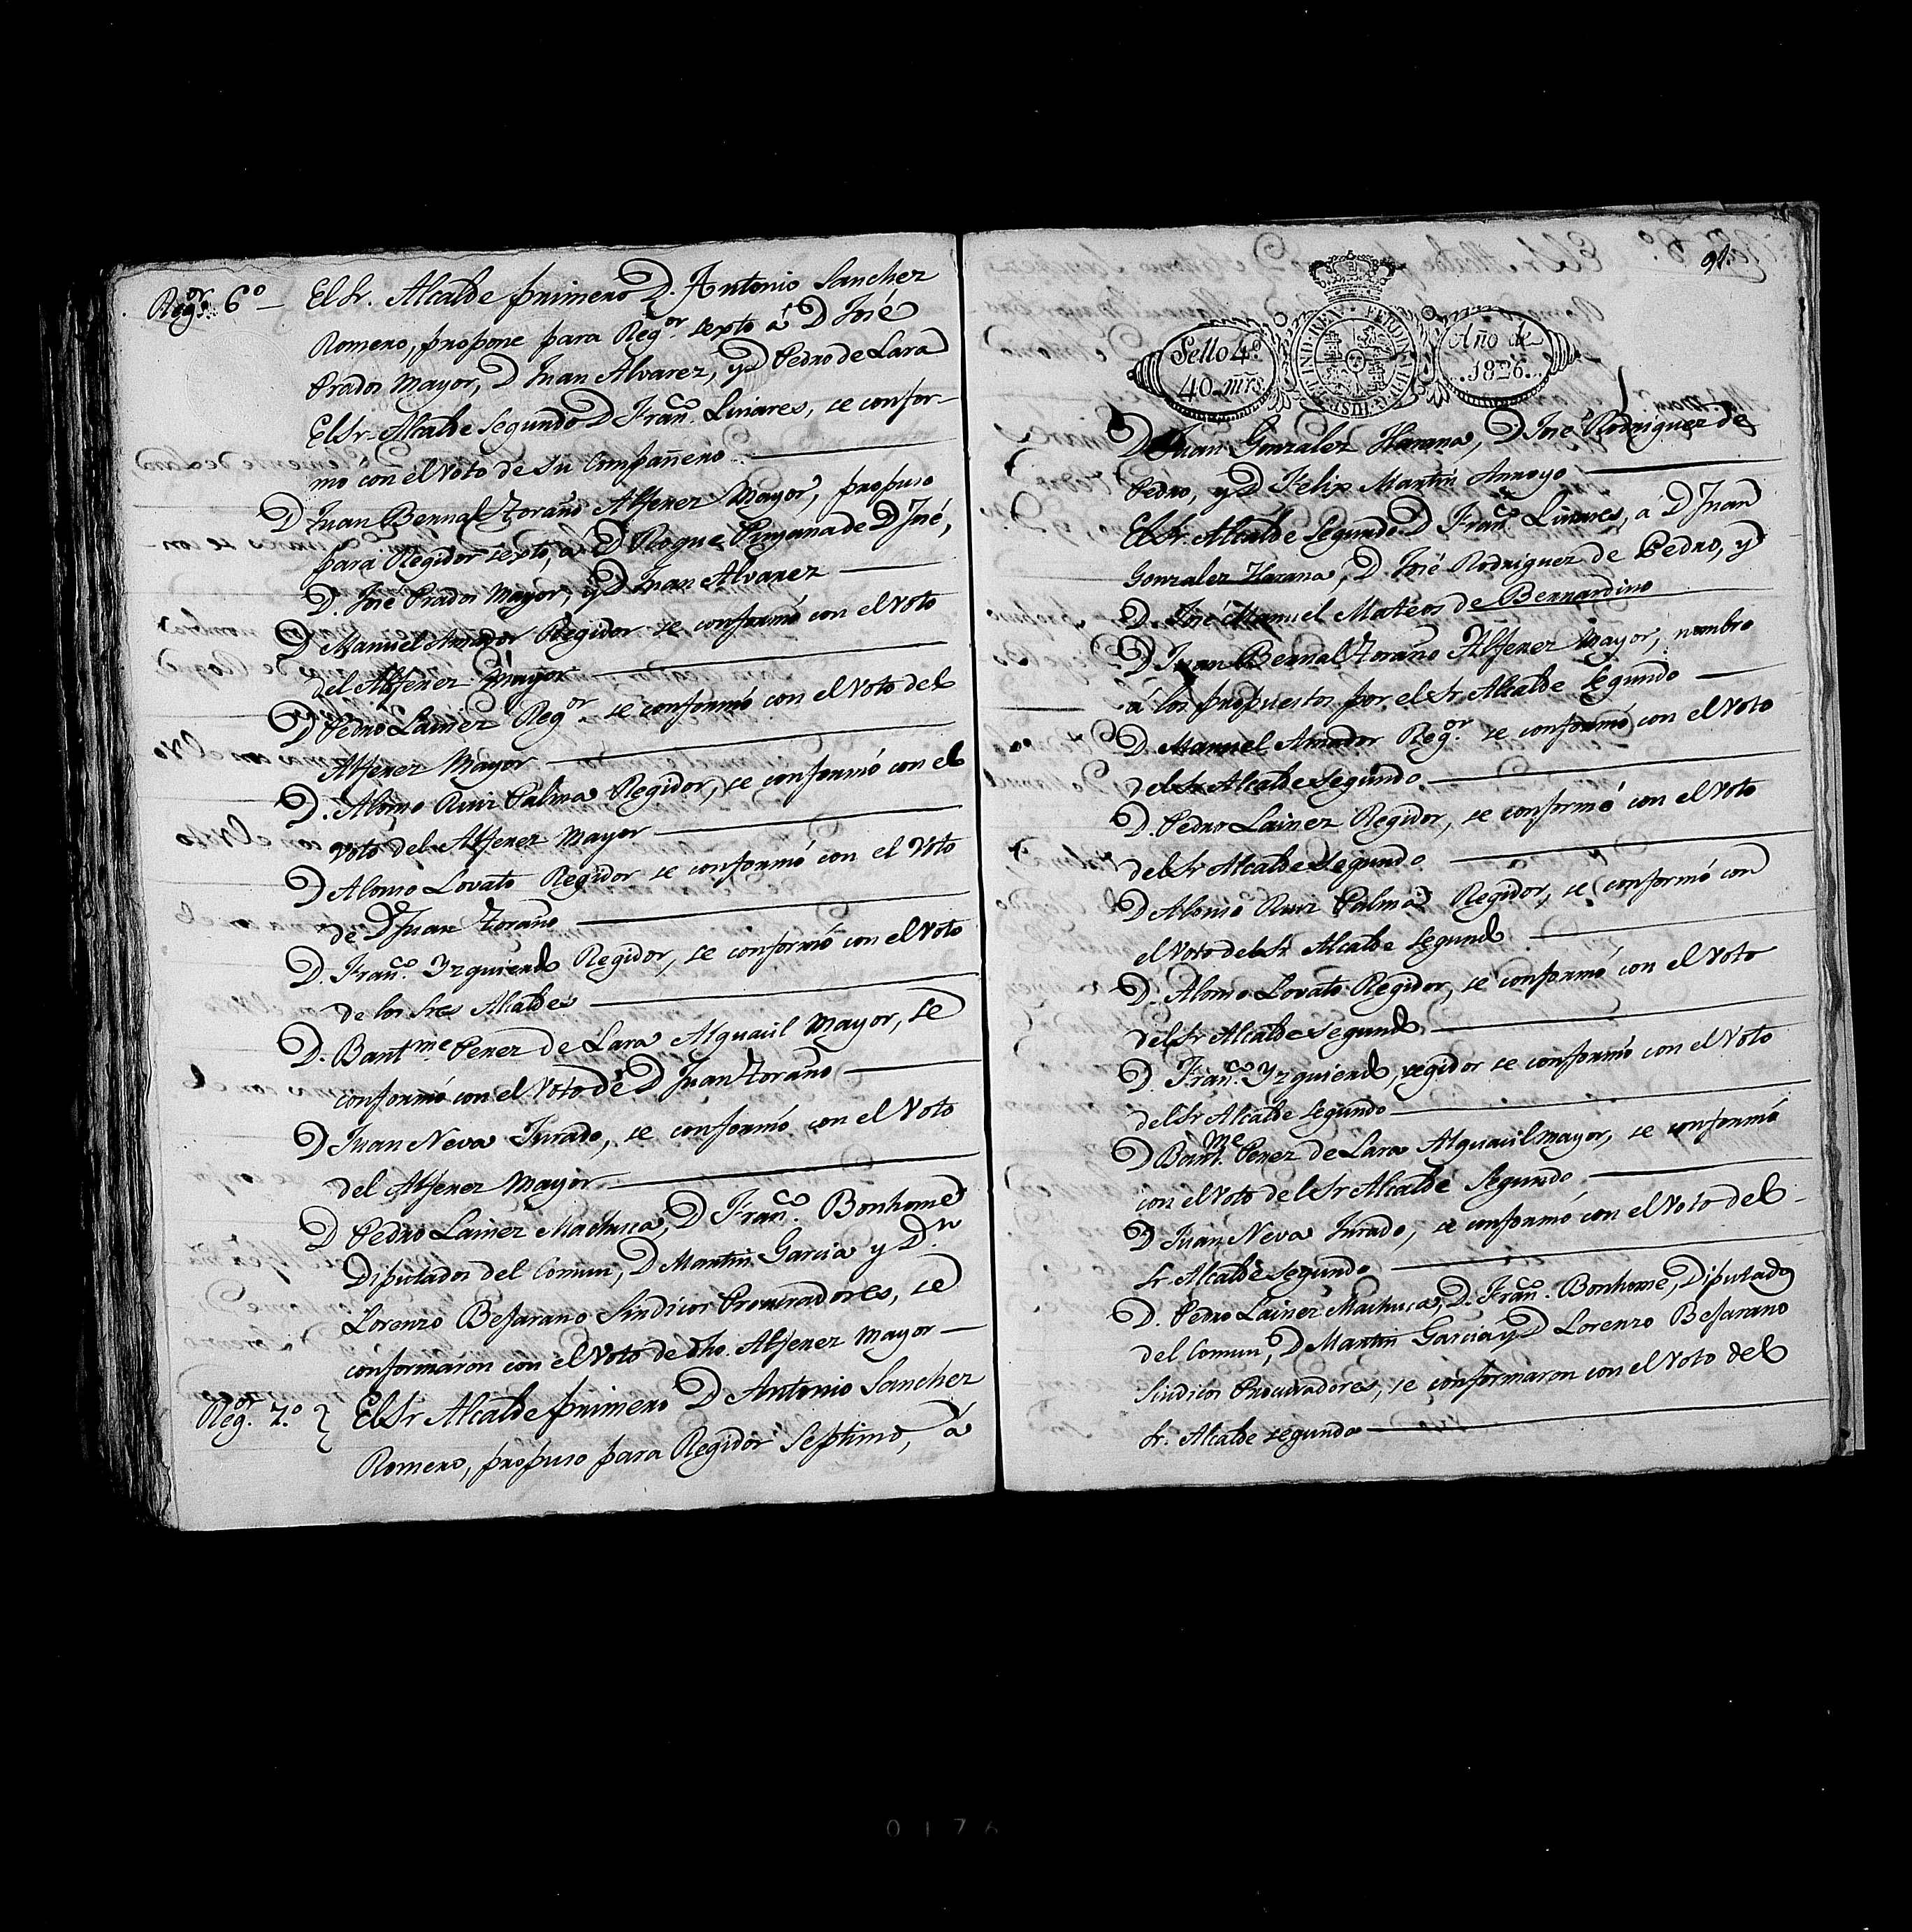 Reg.or 6.o — El Sr. Alcalde primero D. Antonio Sanchez
Romero, propone para Reg.or sexto á D José
Prados Mayor, D Juan Alvarez, y D Pedro de Lara
El Sr. Alcalde Segundo D Fran.co Linares, se confor-
mó con el Voto de Su Compañero
D Juan Bernal Zoraño Alferez Mayor, propuso
para Regidor sexto, á D Roque Pinzana de D José,
D. José Prados Mayor, y D Juan Alvarez
D Manuel Amador Regidor se conformó con el Voto
del Alferez Mayor
D Pedro Lainez Reg.or se conformó con el Voto del
Alferez Mayor
D. Alonso Ruiz Palma Regidor, se conformó con el
Voto del Alferez Mayor
D Alonso Lovato Regidor se conformó con el Voto
de D Juan Zoraño
D. Fran.co Yzquierdo Regidor, se conformó con el Voto
de los Sres Alcaldes
D. Bart.me Perez de Lara Alguacil Mayor, se
conformó con el Voto de D Juan Zoraño
D Juan Neva Jurado, se conformó con el Voto
del Alferez Mayor
D Pedro Lainez Machuca, D Fran.co Bonhome
Diputados del Comun, D Martin Garcia y D.n
Lorenzo Bejarano Sindicos Procuradores, se
conformaron con el Voto de dho. Alferez Mayor
Reg.or 7.o } El Sr Alcalde primero D Antonio Sanchez
Romero, propuso para Regidor Septimo, á
91.
Sello 4.o
40 mrs.
HISP. ET IND. REX FERDIN. VII. D. G.
Año de
1826.
D Juan Gonzalez Harana, D José Rodriguez de
Pedro, y D Felix Martin Arroyo
El Sr. Alcalde Segundo D Fran.co Linares, á D Juan
Gonzalez Harana, D. José Rodriguez de Pedro, y
D. José Manuel Mateos de Bernardino
D Juan Bernal Zoraño Alferez Mayor, nombro
á los propuestos por el Sr Alcalde Segundo
D. Manuel Amador Reg.or se conformó con el Voto
del Sr Alcalde Segundo
D. Pedro Lainez Regidor, se conformó con el Voto
del Sr Alcalde Segundo
D Alonso Ruiz Palma Regidor, se conformó con
el Voto del Sr Alcalde Segundo
D. Alonso Lovato Regidor, se conformó con el Voto
del Sr Alcalde Segundo
D. Fran.co Yzquierdo, regidor se conformó con el Voto
del Sr Alcalde Segundo
D Bart.me Perez de Lara Alguacil mayor, se conformó
con el Voto del Sr Alcalde Segundo
D Juan Neva Jurado, se conformó con el Voto del
Sr Alcalde Segundo
D. Pedro Lainez Machuca, D. Fran.co Bonhome, Diputados
del Comun, D Martin Garcia y D Lorenzo Bejarano
Sindicos Procuradores, se conformaron con el Voto del
Sr. Alcalde segundo
0176